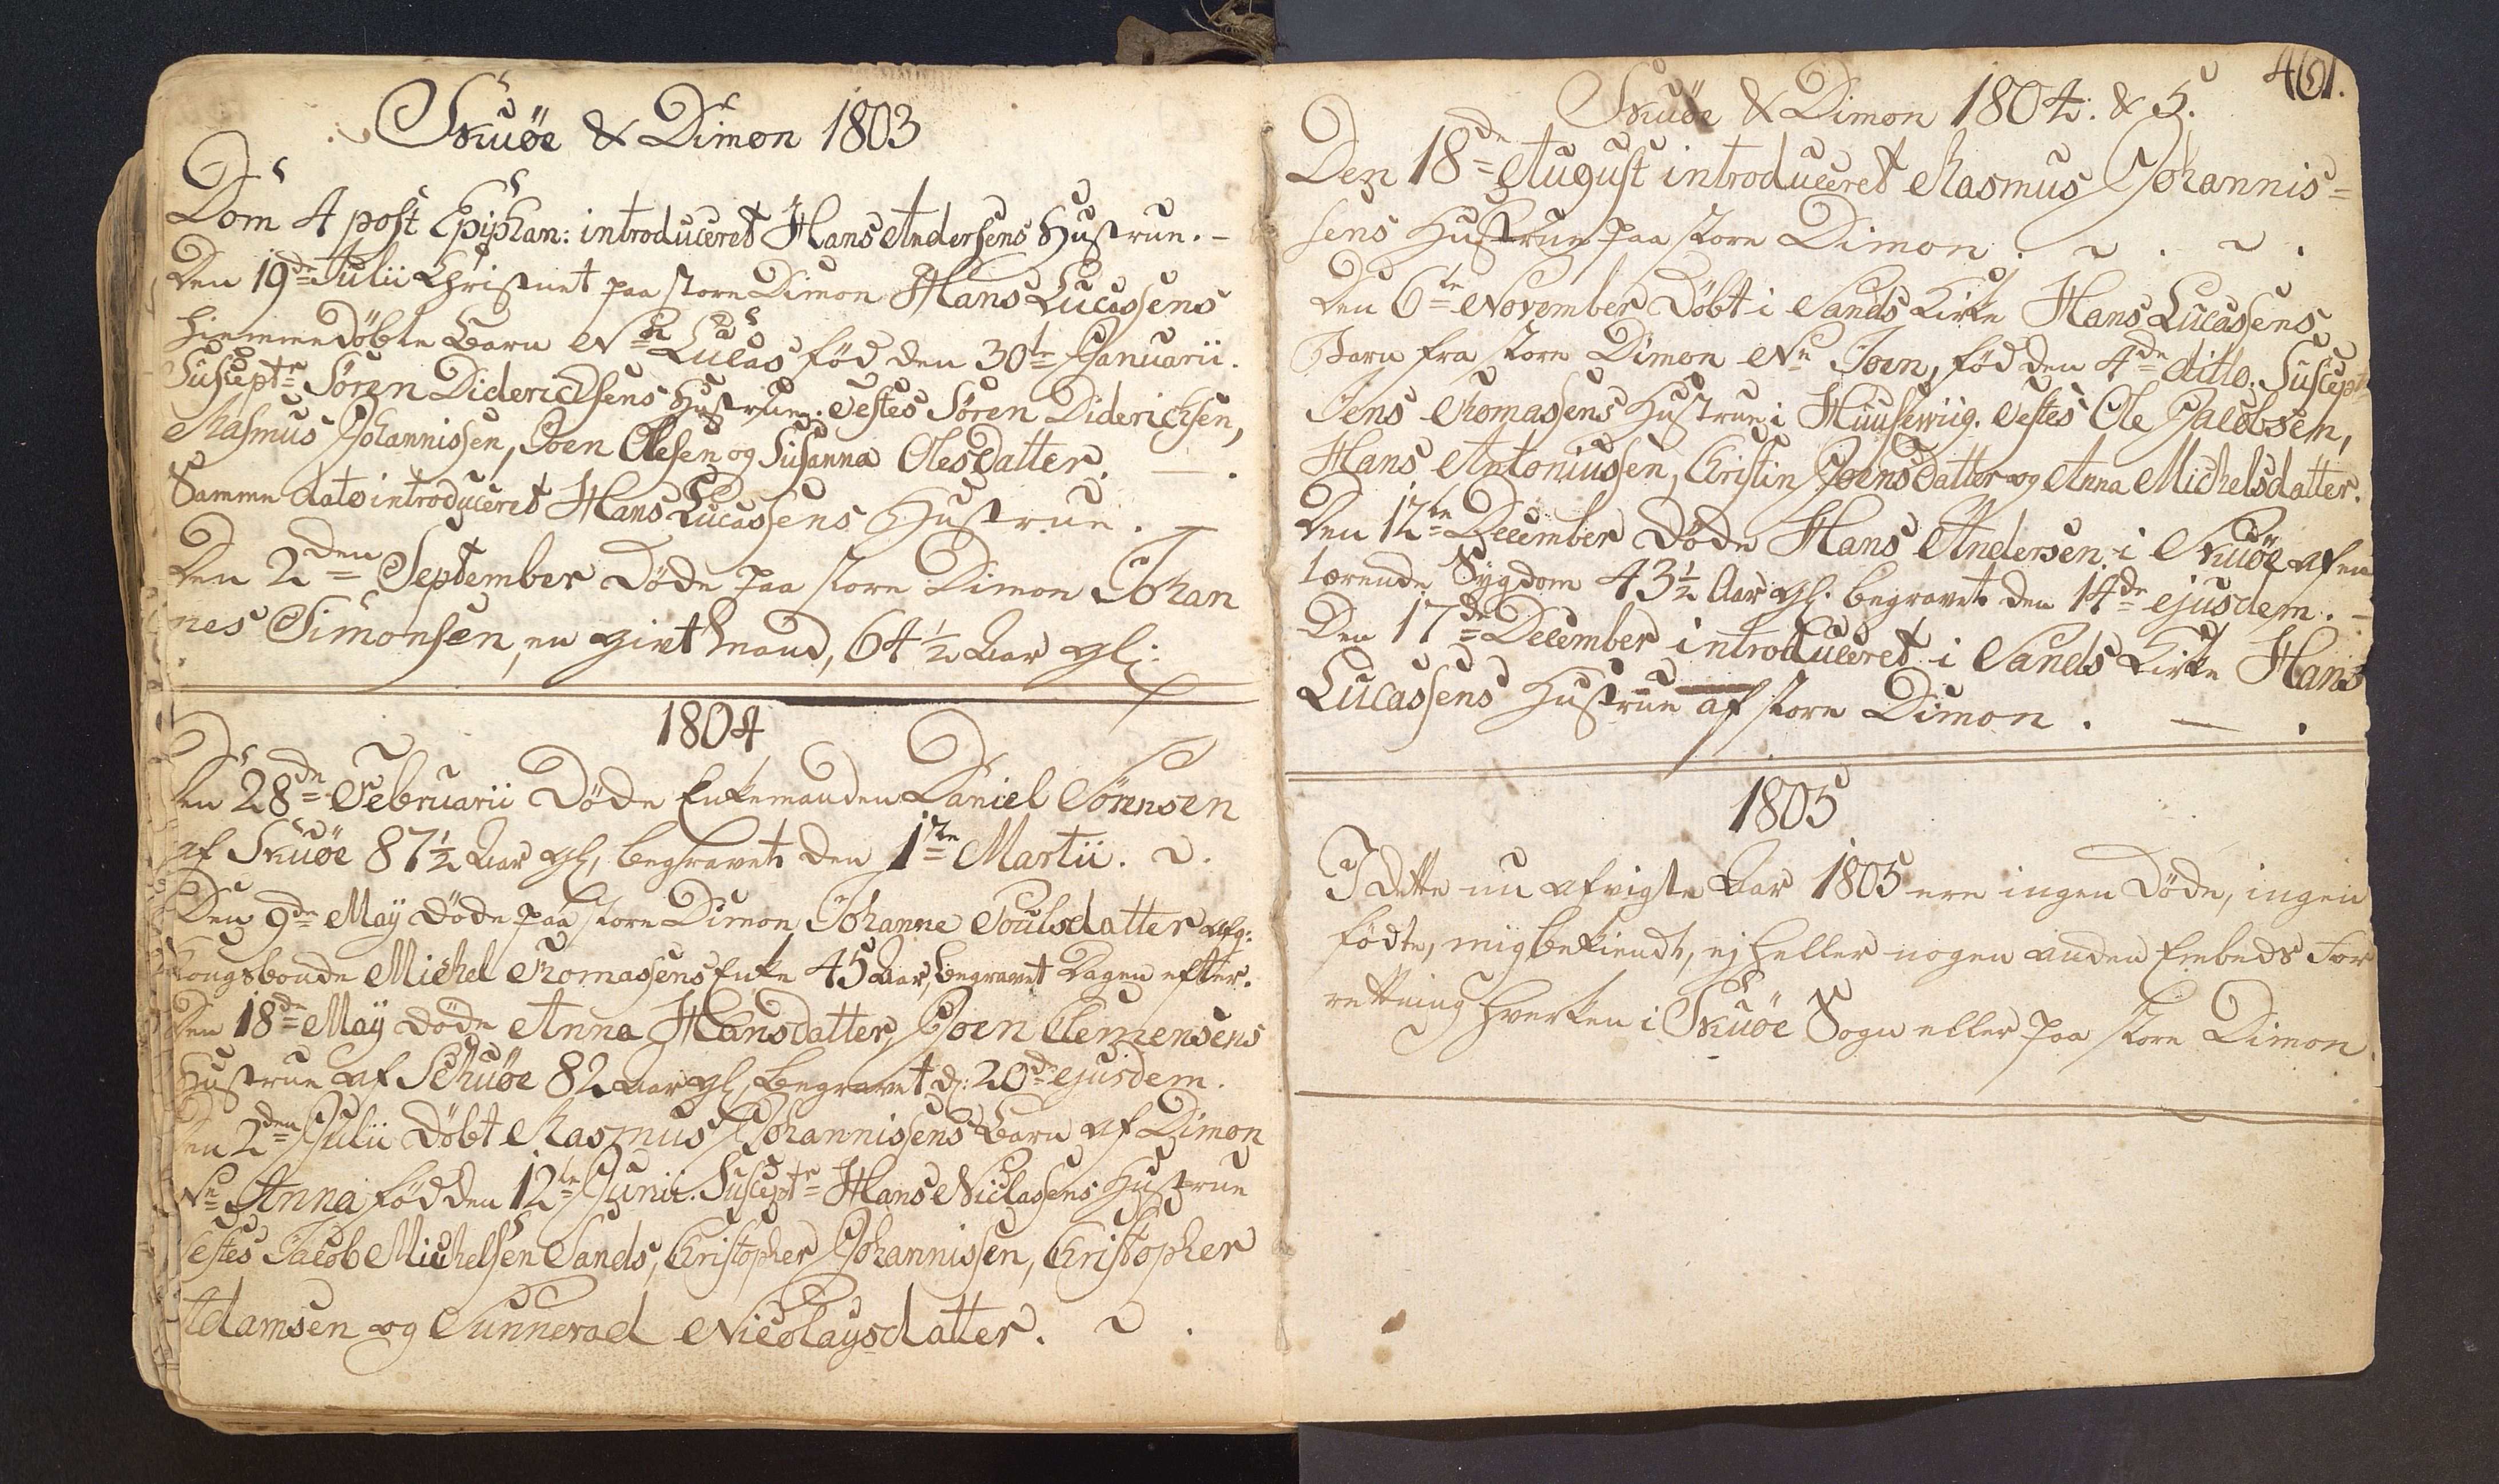 Skuøe & Dimon 1803
Dom 4 post Epiphan: introduceret Hans Andersens Hustrue. -
Den 19de Julii Christnet paa store Dimon Hans Lucassens
hiemmedøbte Barn Nn Lucas fød den 30te Januarii.
Suscepte Søren Diderichsens Hustrue. Testes Søren Diderichsen,
Rasmus Johannissen, Joen Olesen og Susanna Olesdatter. — .
Samme dato introduceret Hans Lucassens Hustrue. —
Den 2den September Døde paa store Dimon Johan
nes Simonsen, en givt Mand, 64½ Aar gl:
1804
Den 28de Februarii Døde Enkemanden Daniel Sörensen
af Skuøe 87½ Aar gl, begravet den 1ste Martii.
Den 9de Maÿ Døde paa store Dimon Johanne Poulsdatter afg:
Kongsbonde Michel Thomassens Enke 45 Aar, begravet Dagen efter.
Den 18de Maÿ Døde Anna Hansdatter, Joen Clemensens
Hustrue af Schuøe 82 Aar gl, begravet d: 20de ejusdem.
Den 2den Julii Døbt Rasmus Johannissens Barn af Dimon
Nn Anna fød den 12te Junii. Suscepte Hans Niclasens Hustrue
Testes Jacob Michelsen Sands, Christopher Johannissen, Christopher
Adamsen og Sunnevad Nicolaysdatter.
401.
Skuøe & Dimon 1804. & 5.
Den 18de August introduceret Rasmus Johannis=
sens Hustrue paa store Dimon.
Den 6te November Døbt i Sands Kirke Hans Lucassens
Barn fra store Dimon Nn Joen, fød den 4de ditto. Suscept
Jens Thomasens Hustrue i Huusewiig. Testes Ole Jacobsen,
Hans Antoniussen, Christin Joensdatter og Anna Michelsdatter.
Den 12te December Døde Hans Andersen i Skuøe af en
tærende Sygdom 43½ Aar gl. begravet den 14de ejusdem. -
Den 17de December introduceret i Sands Kirke Hans
Lucassens Hustrue af store Dimon. — .
1805
I dette nu afvigte Aar 1805 ere ingen Døde, ingen
fødte, mig bekiendt, ej heller nogen anden Embeds For
rettning hverken i Skuøe Sogn eller paa store Dimon.